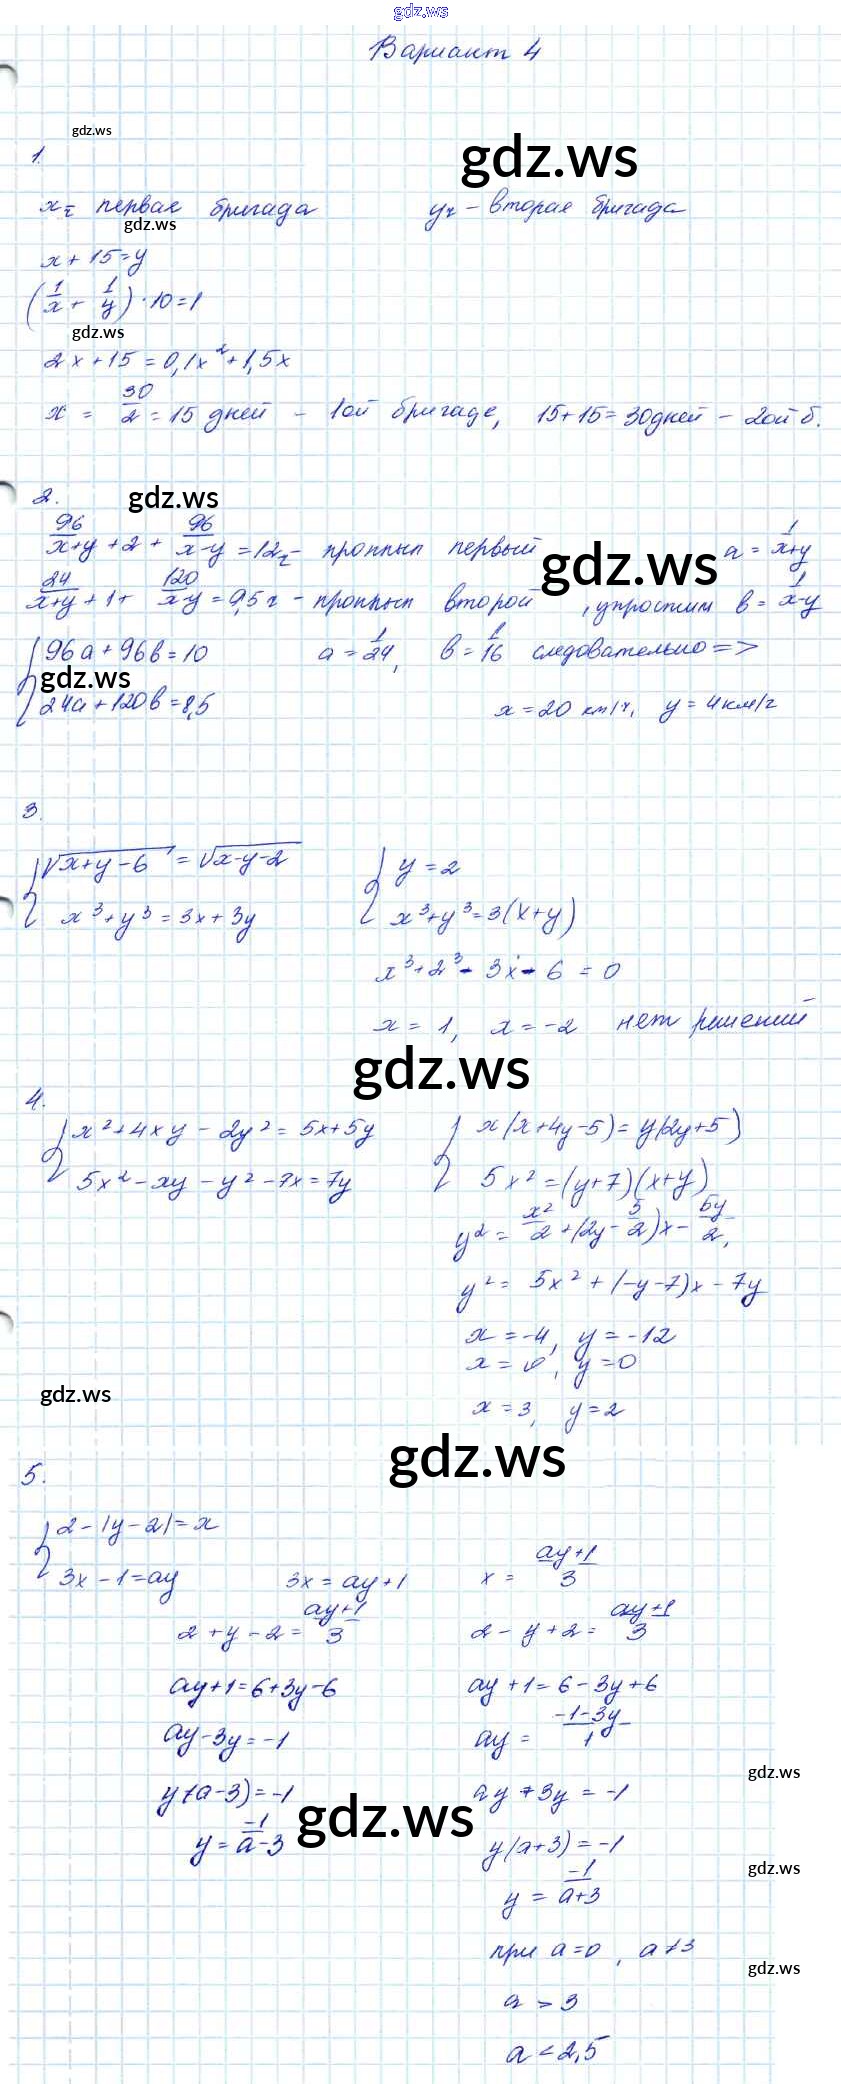 gdz.ws
Вариант 4
gdz.ws
1.
gdz.ws
x - первая бригада y - вторая бригада
gdz.ws
x + 15 = y
(1/x + 1/y) · 10 = 1
gdz.ws
2x + 15 = 0,1x² + 1,5x
x = 30/2 = 15 дней - 1ой бригаде, 15 + 15 = 30 дней - 2ой б.
2.
gdz.ws
96/(x+y) + 2 + 96/(x-y) = 12 г - проплыл первый a = 1/(x+y)
gdz.ws
24/(x+y) + 1 + 120/(x-y) = 9,5 г - проплыл второй, упростим в = 1/(x-y)
{ 96a + 96в = 10 a = 1/24, в = 1/16 следовательно =>
gdz.ws
24a + 120в = 8,5 x = 20 км/ч, y = 4 км/г
3.
{ √(x+y-6) = √(x-y-2) { y = 2
x³ + y³ = 3x + 3y x³ + y³ = 3(x+y)
x³ + 2³ - 3x - 6 = 0
x = 1, x = -2 нет решений
gdz.ws
4.
{ x² + 4xy - 2y² = 5x + 5y { x(x+4y-5) = y(2y+5)
5x² - xy - y² - 7x = 7y 5x² = (y+7)(x+y)
y² = x²/2 + (2y - 5/2)x - 5y/2,
y² = 5x² + (-y-7)x - 7y
x = -4, y = -12
x = 0, y = 0
gdz.ws
x = 3, y = 2
gdz.ws
5.
{ 2 - |y-2| = x
3x - 1 = ay 3x = ay + 1 x = (ay+1)/3
2 + y - 2 = (ay+1)/3 2 - y + 2 = (ay+1)/3
ay + 1 = 6 + 3y - 6 ay + 1 = 6 - 3y + 6
ay - 3y = -1 ay = (-1-3y)/1
gdz.ws
y(a-3) = -1 ay + 3y = -1
gdz.ws
y = -1/(a-3) y(a+3) = -1
gdz.ws
y = -1/(a+3)
при a = 0, a ≠ 3
gdz.ws
a > 3
a < 2,5